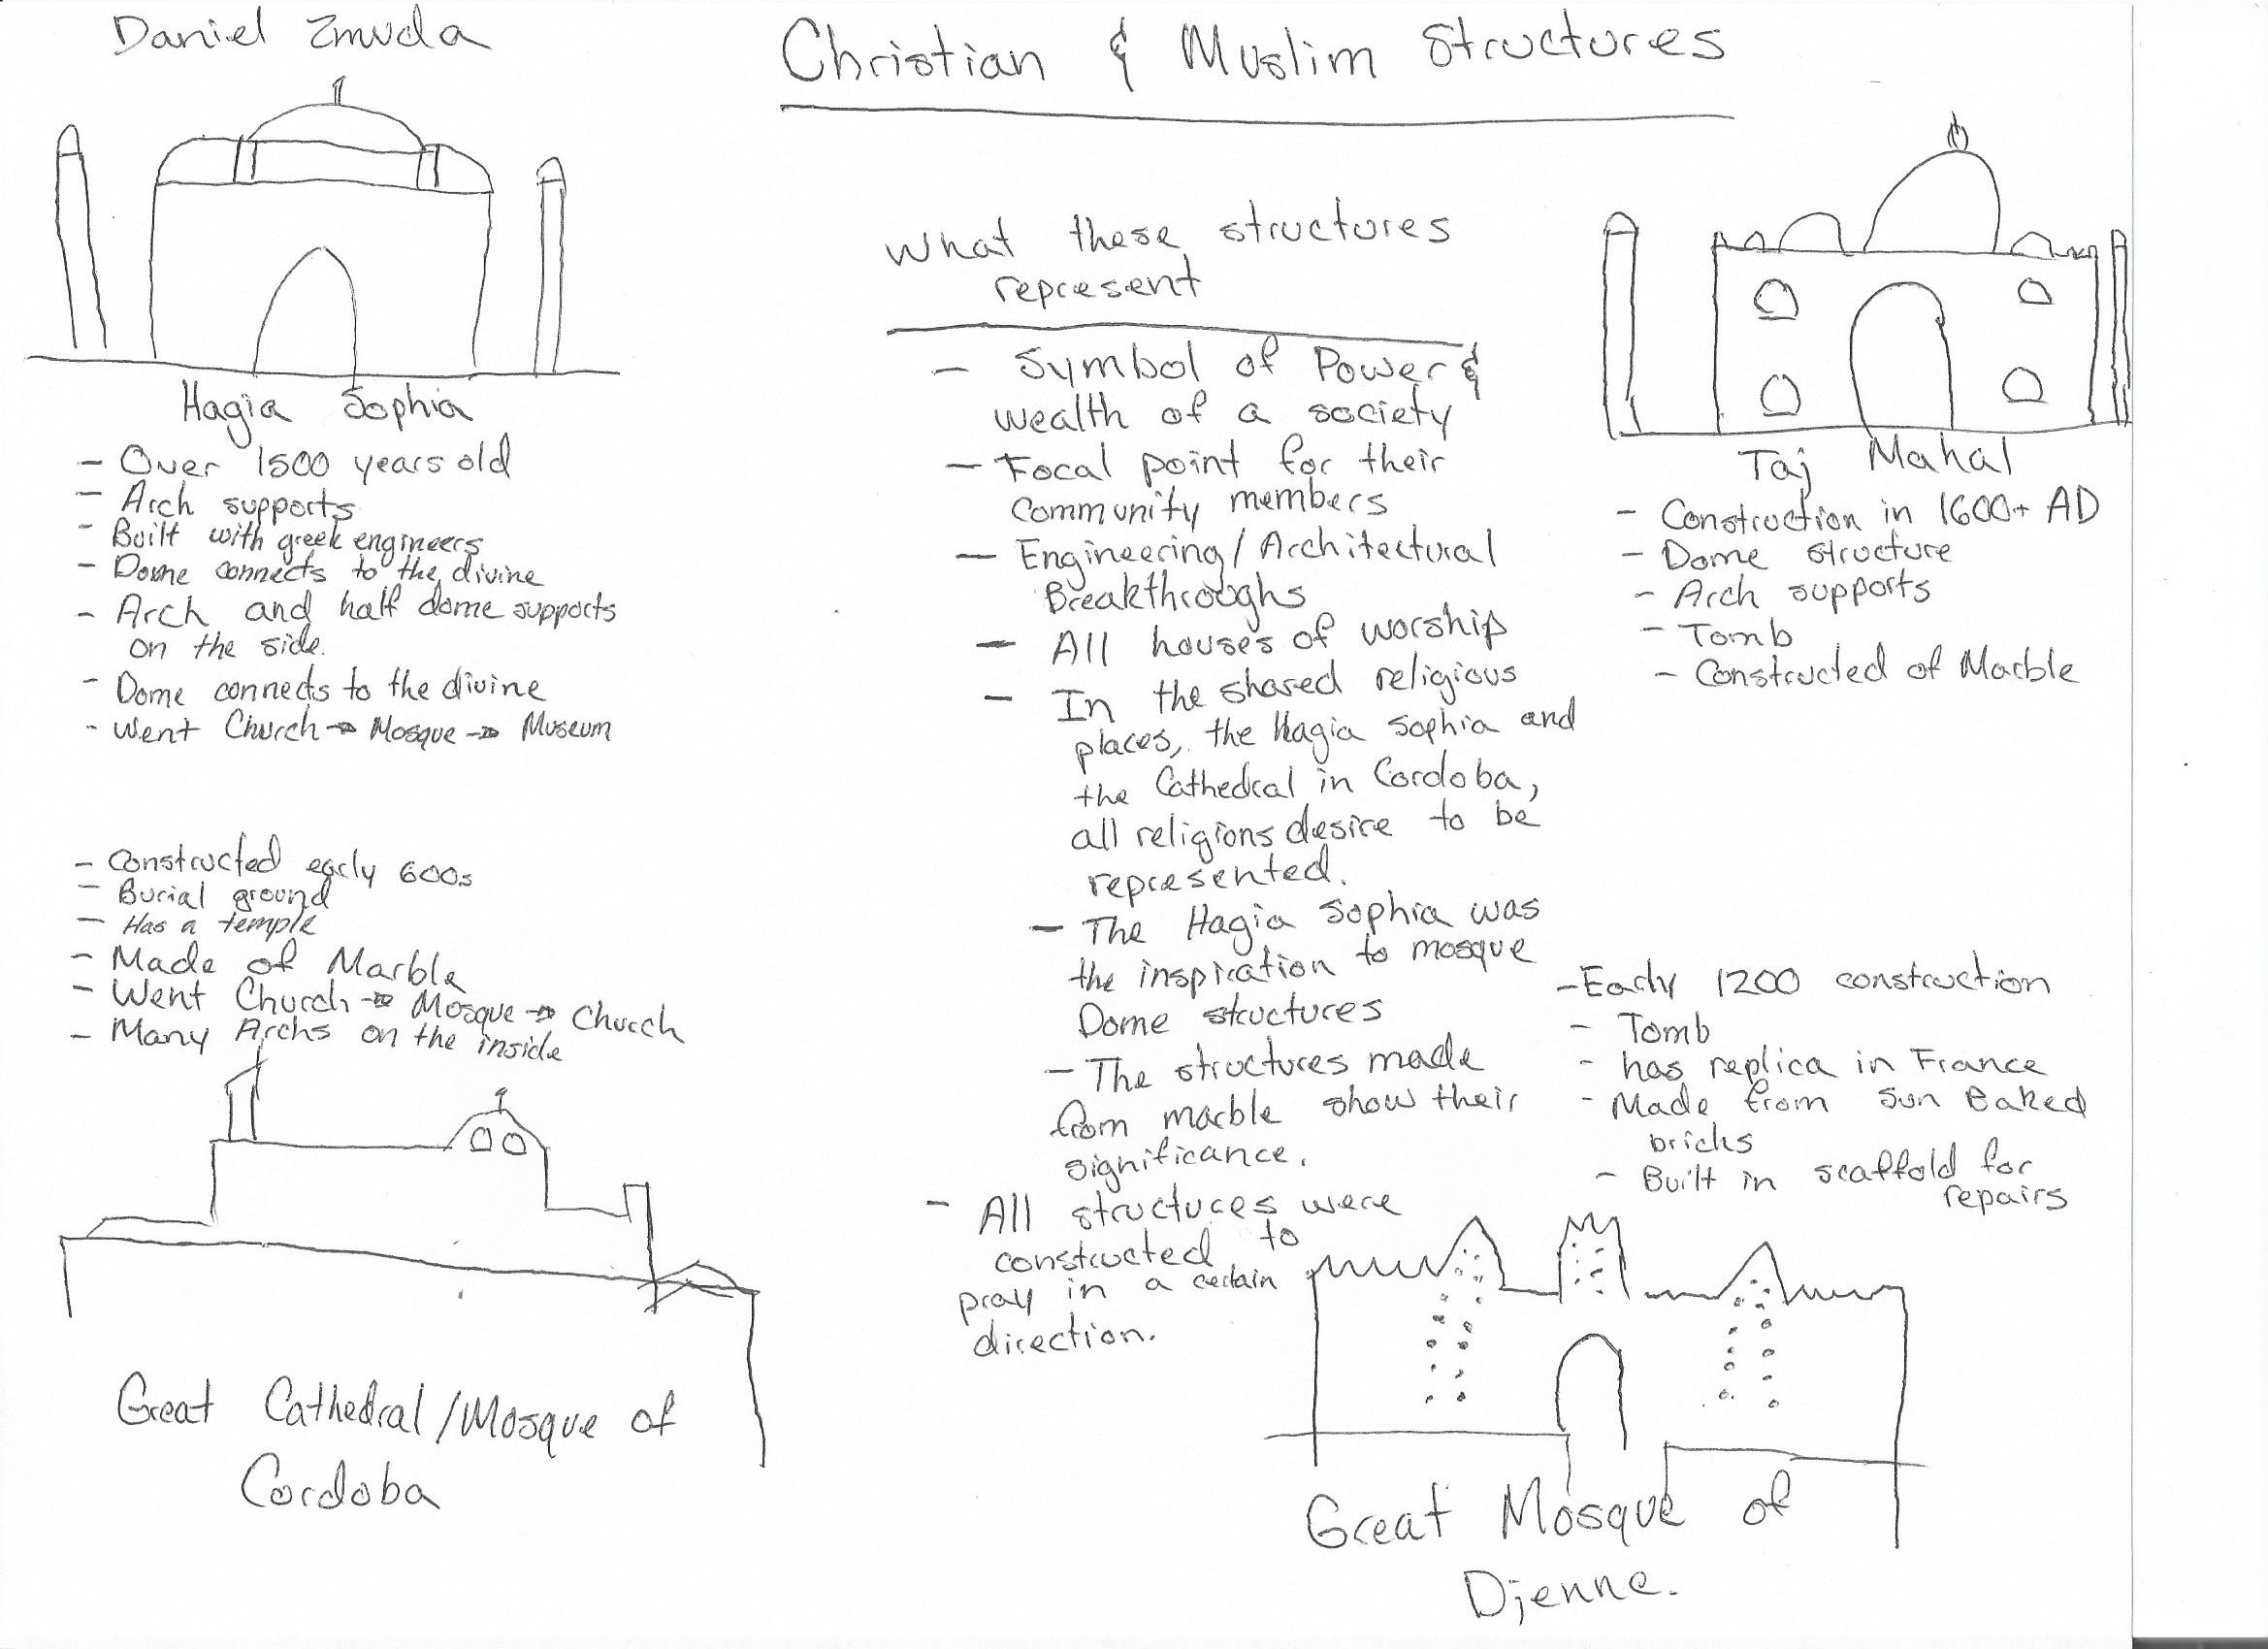 Daniel Zmuda
Christian & Muslim Structures
Hagia Sophia
- Over 1500 years old
- Arch supports
- Built with greek engineers
- Dome connects to the divine
- Arch and half dome supports
on the side.
- Dome connects to the divine
- Went Church → Mosque → Museum
- Constructed early 600s
- Burial ground
- Has a temple
- Made of Marble
- Went Church → Mosque → Church
- Many Archs on the inside
Great Cathedral/Mosque of
Cordoba
What these structures
represent
- Symbol of Power &
wealth of a society
- Focal point for their
Community members
- Engineering/Architectural
Breakthroughs
- All houses of worship
- In the shared religious
places, the Hagia Sophia and
the Cathedral in Cordoba,
all religions desire to be
represented.
- The Hagia Sophia was
the inspiration to mosque
Dome structures
- The structures made
from marble show their
significance.
- All structures were
constructed to
pray in a certain
direction.
Taj Mahal
- Construction in 1600+ AD
- Dome structure
- Arch supports
- Tomb
- Constructed of Marble
- Early 1200 construction
- Tomb
- has replica in France
- Made from Sun Baked
bricks
- Built in scaffold for
repairs
Great Mosque of
Djenne.